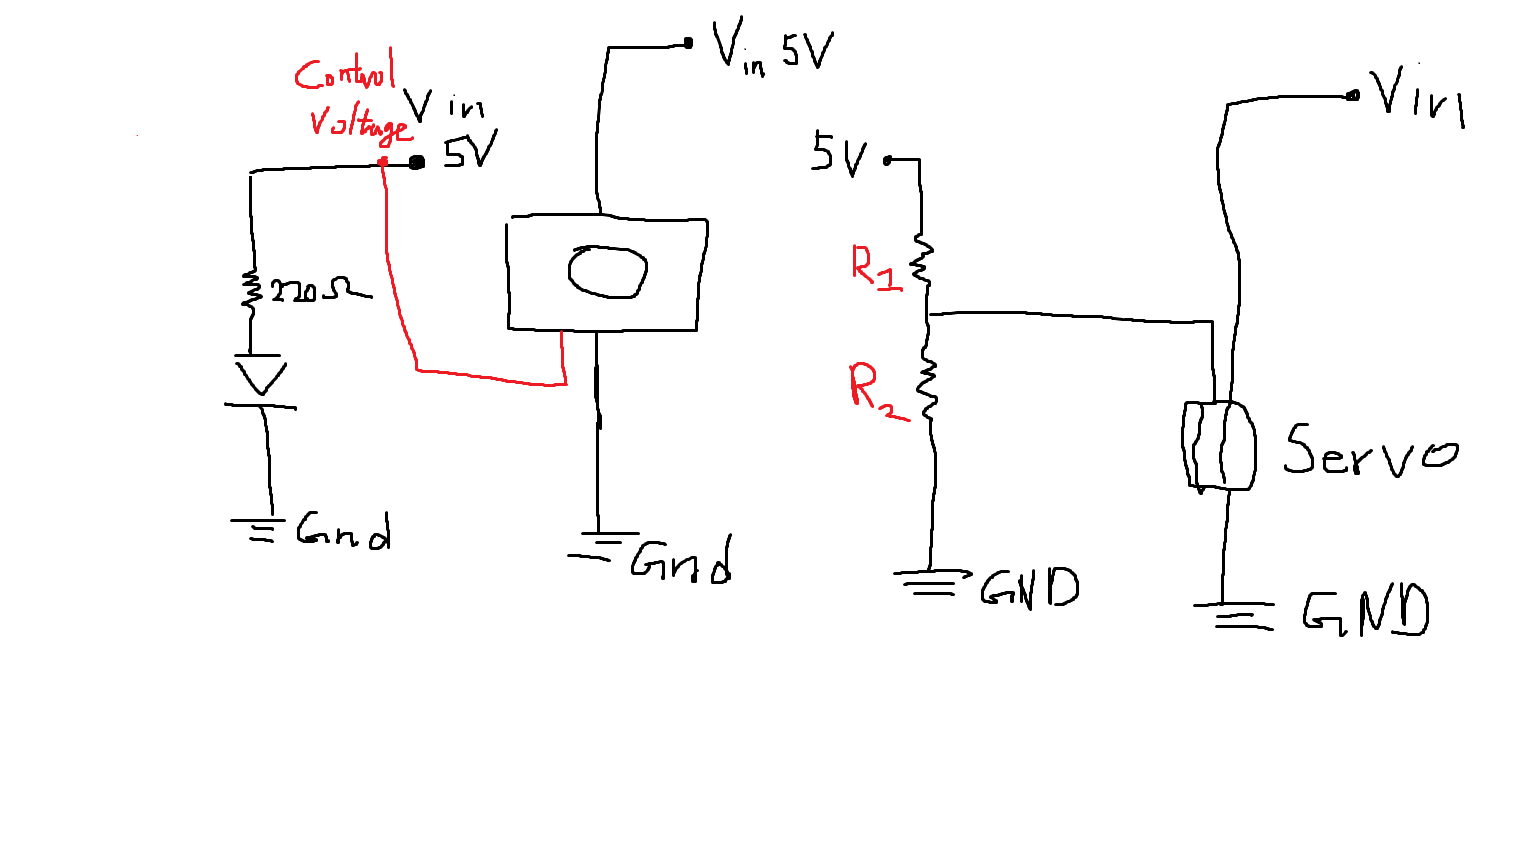 Control
Voltage
Vin
5V
220Ω
Gnd
Vin 5V
Gnd
5V
R1
R2
GND
Vin
Servo
GND